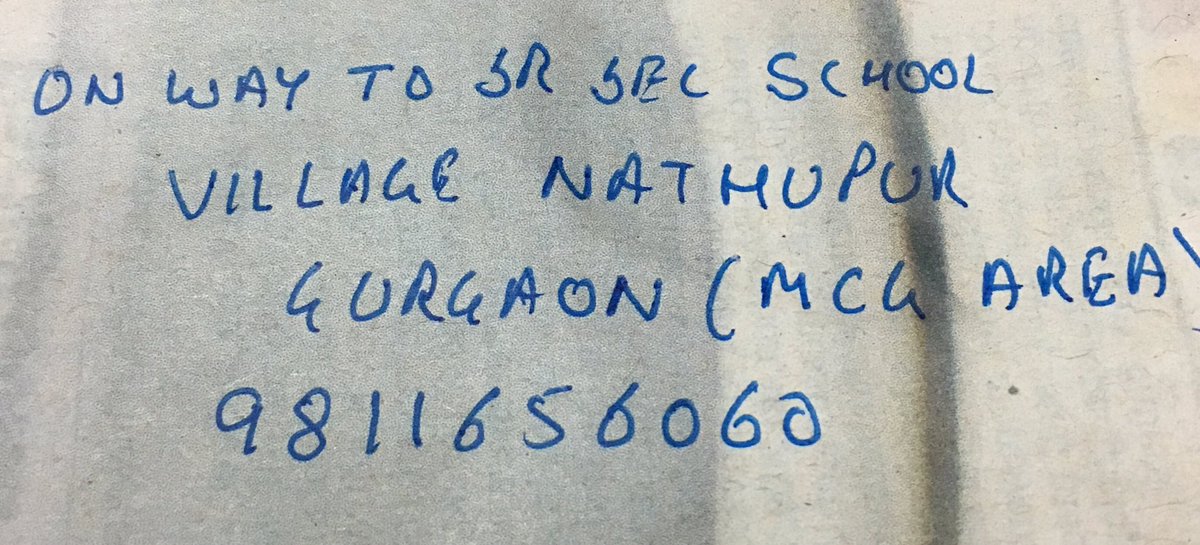 ON WAY TO SR SEC SCHOOL
VILLAGE NATHUPUR
GURGAON (MCG AREA)
9811656060